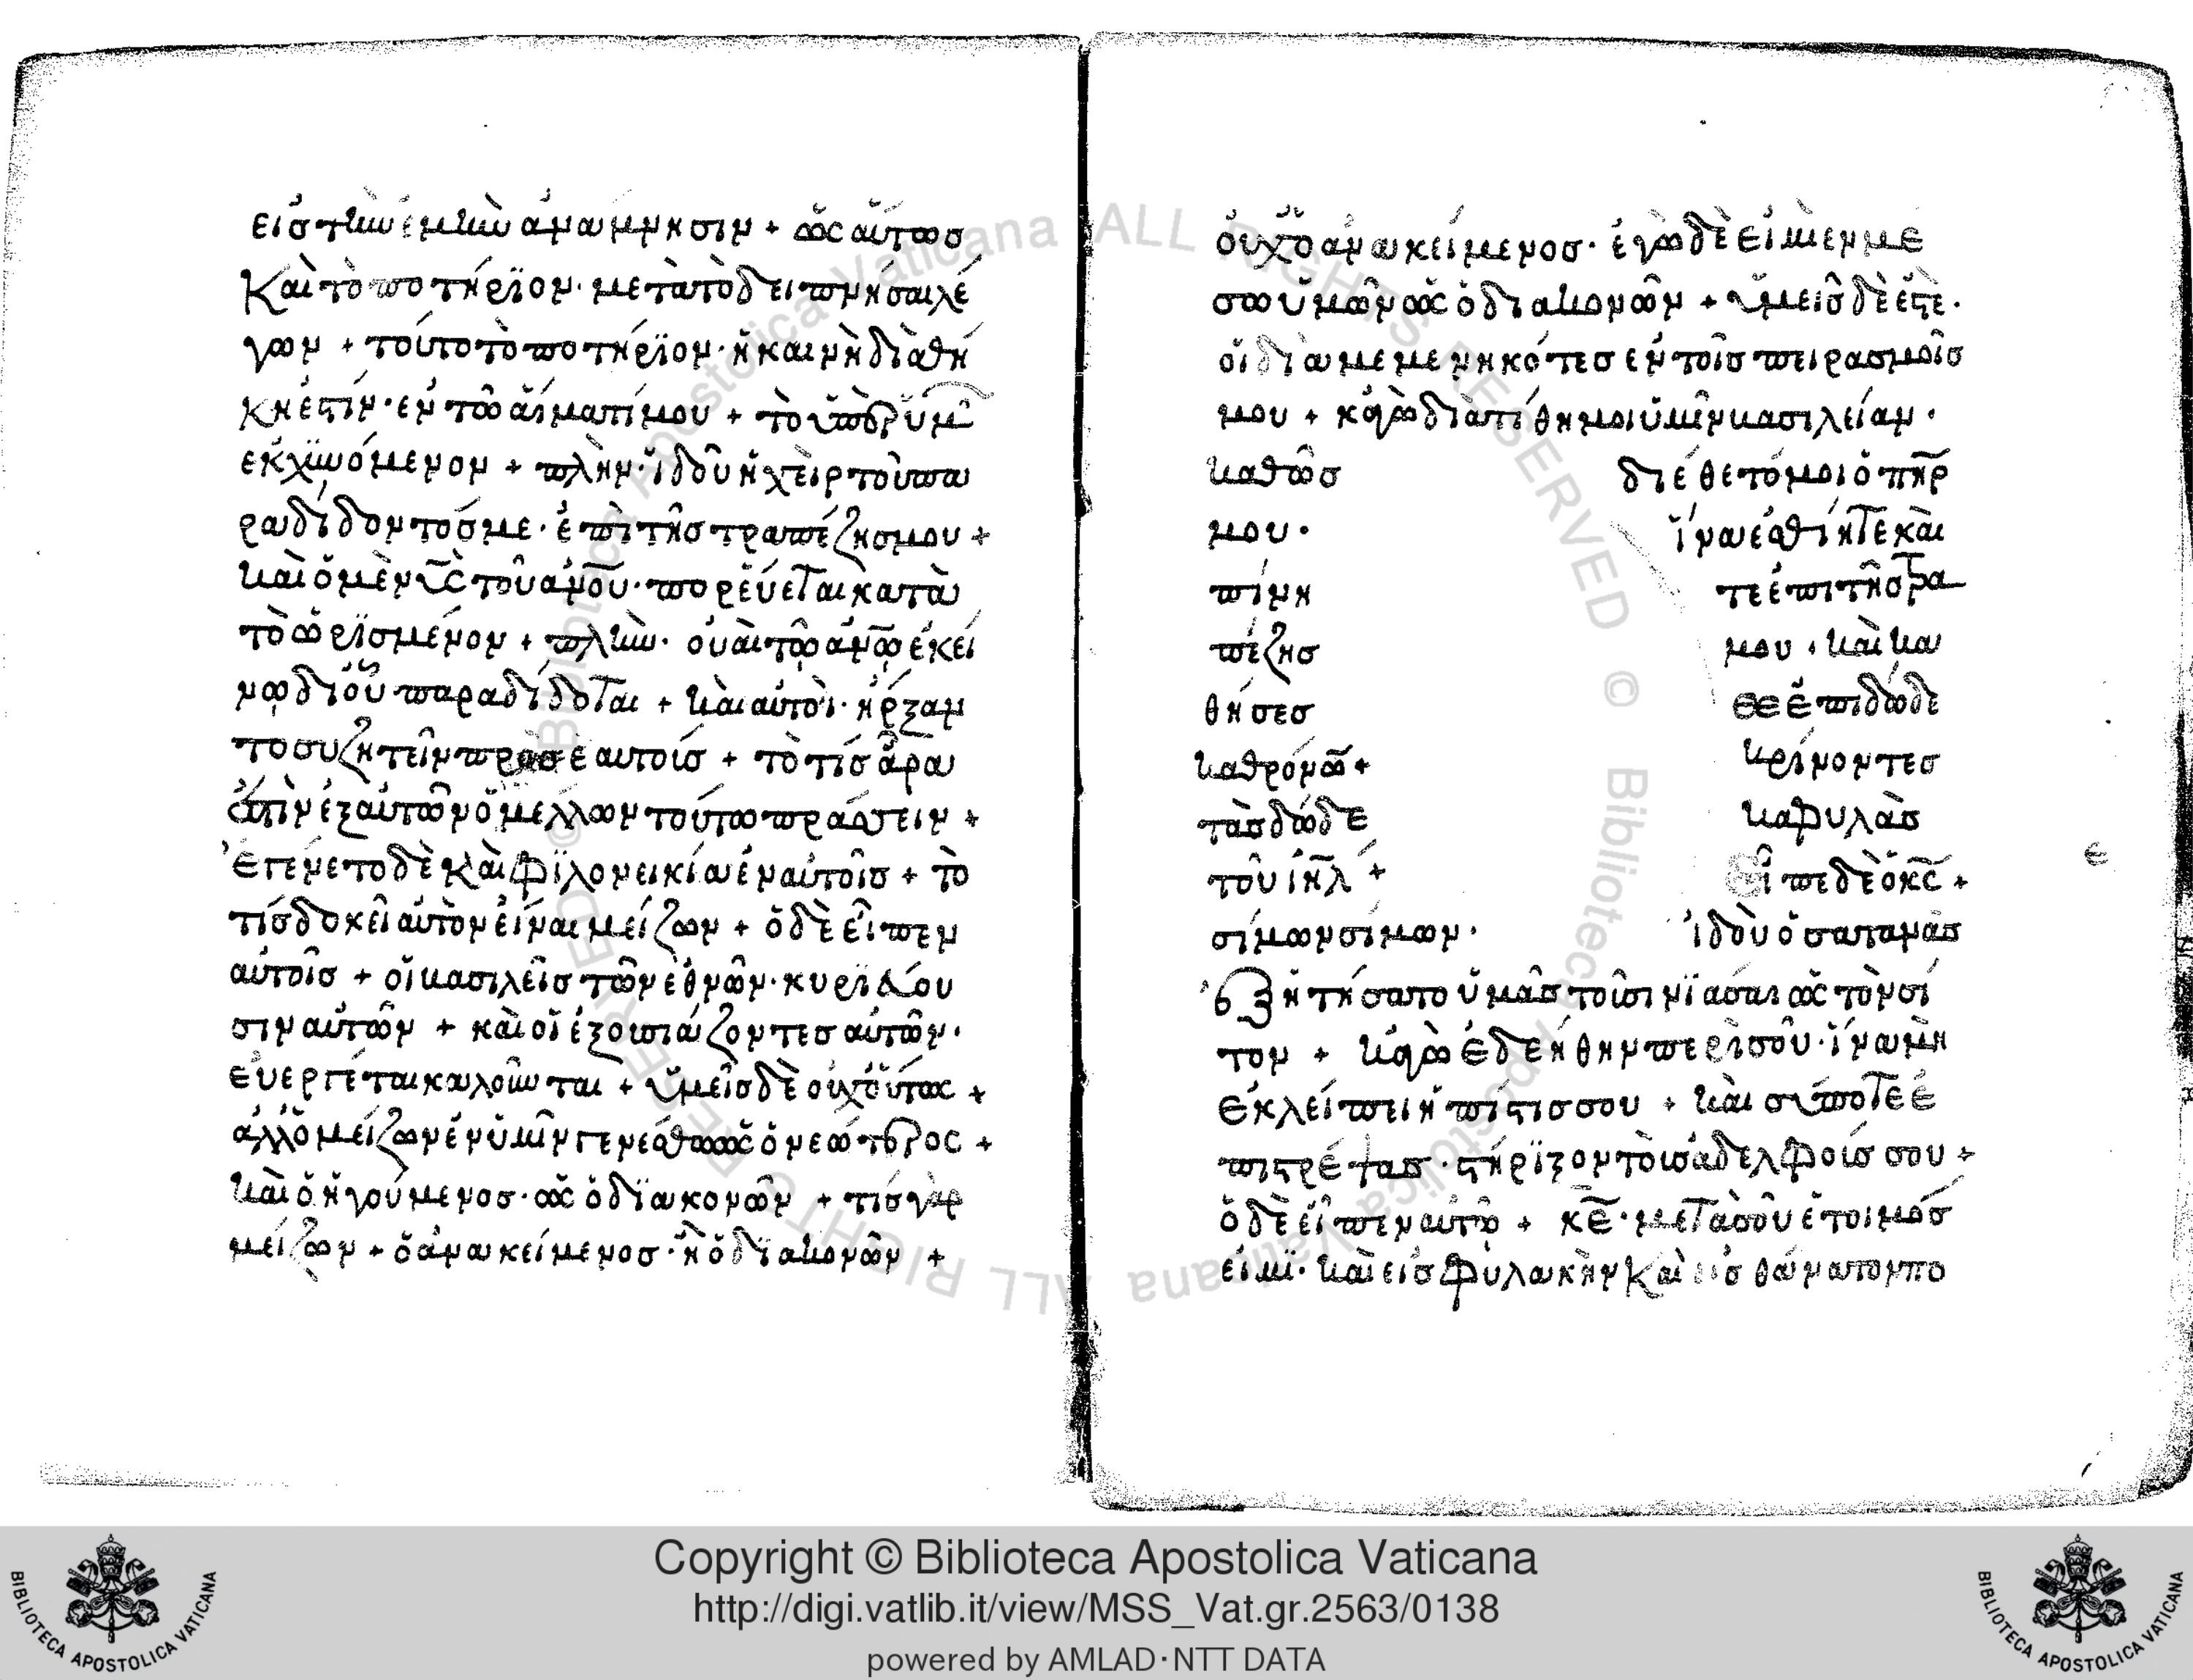 εἰς τὴν ἐμὴν ἀνάμνησιν + ὡς αὕτως
Καὶ τὸ ποτήρϊον· μετὰ τὸ δειπνήσαι λέ
γων + τοῦτο τὸ ποτήρϊον· ἡ και νὴ δϊαθή
κη ἐστὶν· ἐν τῶ αἵματί μου + τὸ ὑπὲρ ὑμ
ἐκχϋνόμενον + πλὴν· ἰδοῦ ἡ χεὶρ τοῦ πα
ραδϊδοντός με· ἐπὶ τῆς τραπέζης μου +
καὶ ὁ μὲν ὑ̅ς̅ τοῦ ἀ̅ν̅ο̅υ̅· πορεύεται κατὰ
τὸ ὡρϊσμένον + πλὴν· οὐαὶ τῶ ἀ̅ν̅ω̅ ἐκεί
νω δϊ οὗ παραδίδοται + καὶ αὐτοὶ· ἤρξαν
το συζητεῖν πρὸς ἑαυτοὺς + τὸ τίς ἄρα
ἐστὶν ἐξ αὐτῶν ὁ μέλλων τοῦτο πράσσειν +
Ἐγένετο δὲ καὶ φϊλονεικία ἐν αὐτοῖς + τὸ
τίς δοκεῖ αὐτὸν εἶναι μείζων + ὁ δὲ εἶπεν
αὐτοῖς + οἱ βασιλεῖς τῶν ἐθνῶν· κυρϊεύου
σιν αὐτῶν + καὶ οἱ ἐξουσιάζοντες αὐτῶν·
εὐεργέται καλοῦνται + ὑμεῖς δὲ οὐχ οὕτως +
ἀλλ ὁ μείζων ἐν ὑμῖν γενέσθω ὡς ὁ νεώτερος +
καὶ ὁ ἡγούμενος· ὡς ὁ δϊακονῶν + τίς γὰρ
μείζων + ὁ ἀνακείμενος· ἢ ὁ δϊακονῶν +
οὐχ ὁ ἀνακείμενος· ἐγὼ δὲ εἰμὶ ἐν με
σω ὑμῶν ὡς ὁ δϊακονῶν + ὑμεῖς δὲ ἐστὲ·
οἱ δϊαμεμενηκότες ἐν τοῖς πειρασμοῖς
μου + κἀγὼ δϊατίθημοι ὑμῖν βασιλείαν·
καθὼς διέθετό μοι ὁ π̅η̅ρ̅
μου· ἵνα ἐσθίητε καὶ
πίνη τε ἐπὶ τῆς τρα
πέζης μου + καὶ κα
θήσεσ θε ἐπὶ δώδε
κα θρόνω̅ + κρίνοντες
τὰς δώδε κα φυλὰς
τοῦ ἰ̅η̅λ̅ + εἶπε δὲ ὁ κ̅ς̅ +
σίμων σίμων· ἰδοὺ ὁ σατανᾶς
ἐξητήσατο ὑμᾶς τοῦ σινϊάσαι ὡς τὸν σί
τον + κἀγὼ ἐδεήθην περὶ σοῦ· ἵνα μὴ
ἐκλείπει ἡ πίστις σου + καὶ σύ ποτε ἐ
πιστρέψας· στήρϊξον τοὺς ἀδελφούς σου +
ὁ δὲ εἶπεν αυτῶ + κ̅ε̅· μετὰ σοῦ ἕτοιμός
εἰμϊ· καὶ εἰς φυλακὴν καὶ εἰς θάνατον πο
ε
Copyright © Biblioteca Apostolica Vaticana
http://digi.vatlib.it/view/MSS_Vat.gr.2563/0138
powered by AMLAD·NTT DATA
BIBLIOTECA APOSTOLICA VATICANA
BIBLIOTECA APOSTOLICA VATICANA